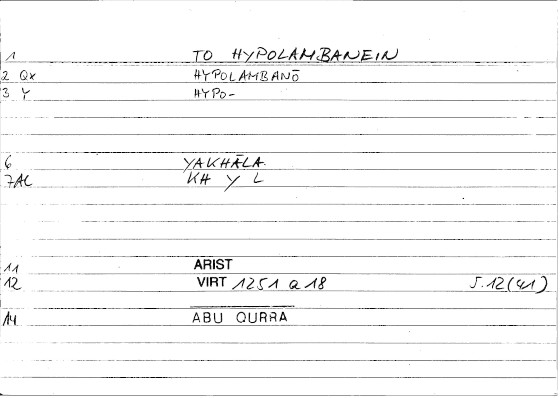 1 TO HYPOLAMBANEIN
2 Qx HYPOLAMBANŌ
3 Y HYPO-
6 YAKHĀLA
7AL KH Y L
11 ARIST
12 VIRT 1251 a 18 5.12(41)
14 ABU QURRA